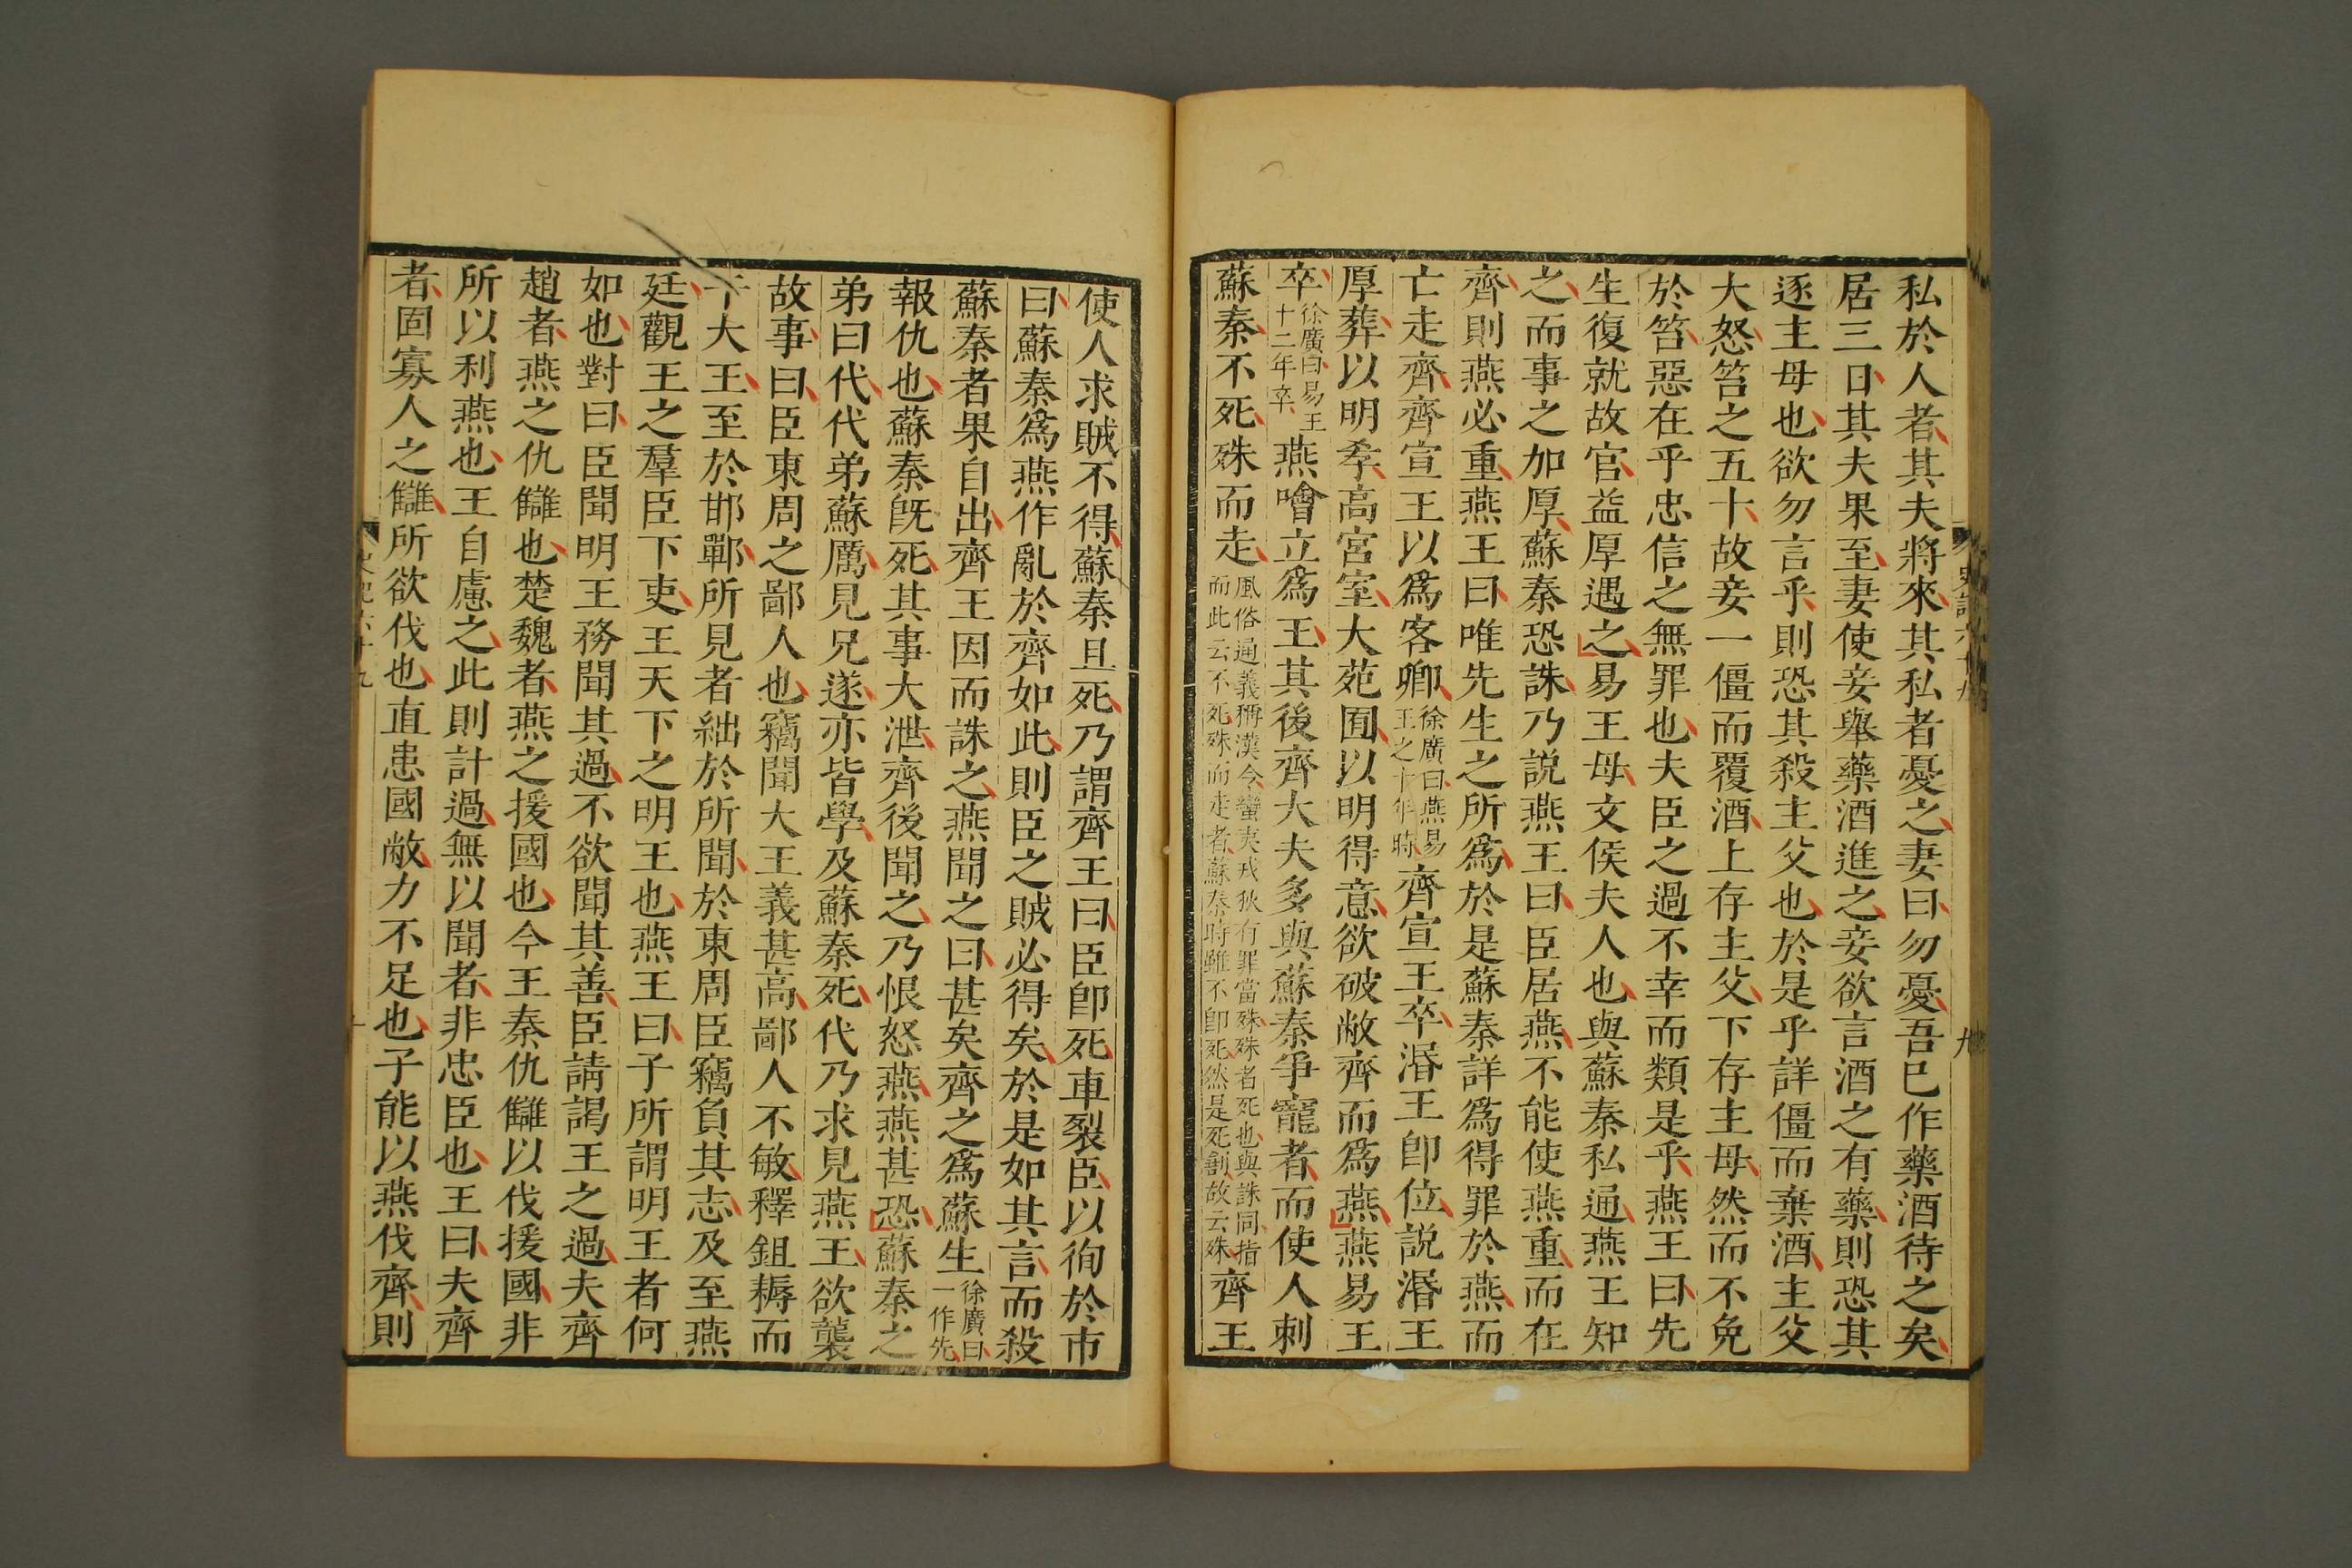 私於人者其夫將來其私者憂之妻曰勿憂吾已作藥酒待之矣
居三日其夫果至妻使妾舉藥酒進之妾欲言酒之有藥則恐其
逐主母也欲勿言乎則恐其殺主父也於是乎詳僵而棄酒主父
大怒笞之五十故妾一僵而覆酒上存主父下存主母然而不免
於笞惡在乎忠信之無罪也夫臣之過不幸而類是乎燕王曰先
生復就故官益厚遇之易王母文侯夫人也與蘇秦私通燕王知
之而事之加厚蘇秦恐誅乃說燕王曰臣居燕不能使燕重而在
齊則燕必重燕王曰唯先生之所爲於是蘇秦詳爲得罪於燕而
亡走齊齊宣王以爲客卿徐廣曰燕易王之十年時齊宣王卒湣王卽位說湣王
厚葬以明孝高宮室大苑囿以明得意欲破敝齊而爲燕燕易王
卒徐廣曰易王十二年卒燕噲立爲王其後齊大夫多與蘇秦爭寵者而使人刺
蘇秦不死殊而走風俗通義稱漢令蠻夷戎狄有罪當殊殊者死也與誅同指而此云不死殊而走者蘇秦時雖不卽死然是死創故云殊齊王
使人求賊不得蘇秦且死乃謂齊王曰臣卽死車裂臣以徇於市
曰蘇秦爲燕作亂於齊如此則臣之賊必得矣於是如其言而殺
蘇秦者果自出齊王因而誅之燕聞之曰甚矣齊之爲蘇生徐廣曰一作先
報仇也蘇秦旣死其事大泄齊後聞之乃恨怒燕燕甚恐蘇秦之
弟曰代代弟蘇厲見兄遂亦皆學及蘇秦死代乃求見燕王欲襲
故事曰臣東周之鄙人也竊聞大王義甚高鄙人不敏釋鉏耨而
干大王至於邯鄲所見者絀於所聞於東周臣竊負其志及至燕
廷觀王之羣臣下吏王天下之明王也燕王曰子所謂明王者何
如也對曰臣聞明王務聞其過不欲聞其善臣請謁王之過夫齊
趙者燕之仇讎也楚魏者燕之援國也今王奉仇讎以伐援國非
所以利燕也王自慮之此則計過無以聞者非忠臣也王曰夫齊
者固寡人之讎所欲伐也直患國敝力不足也子能以燕伐齊則